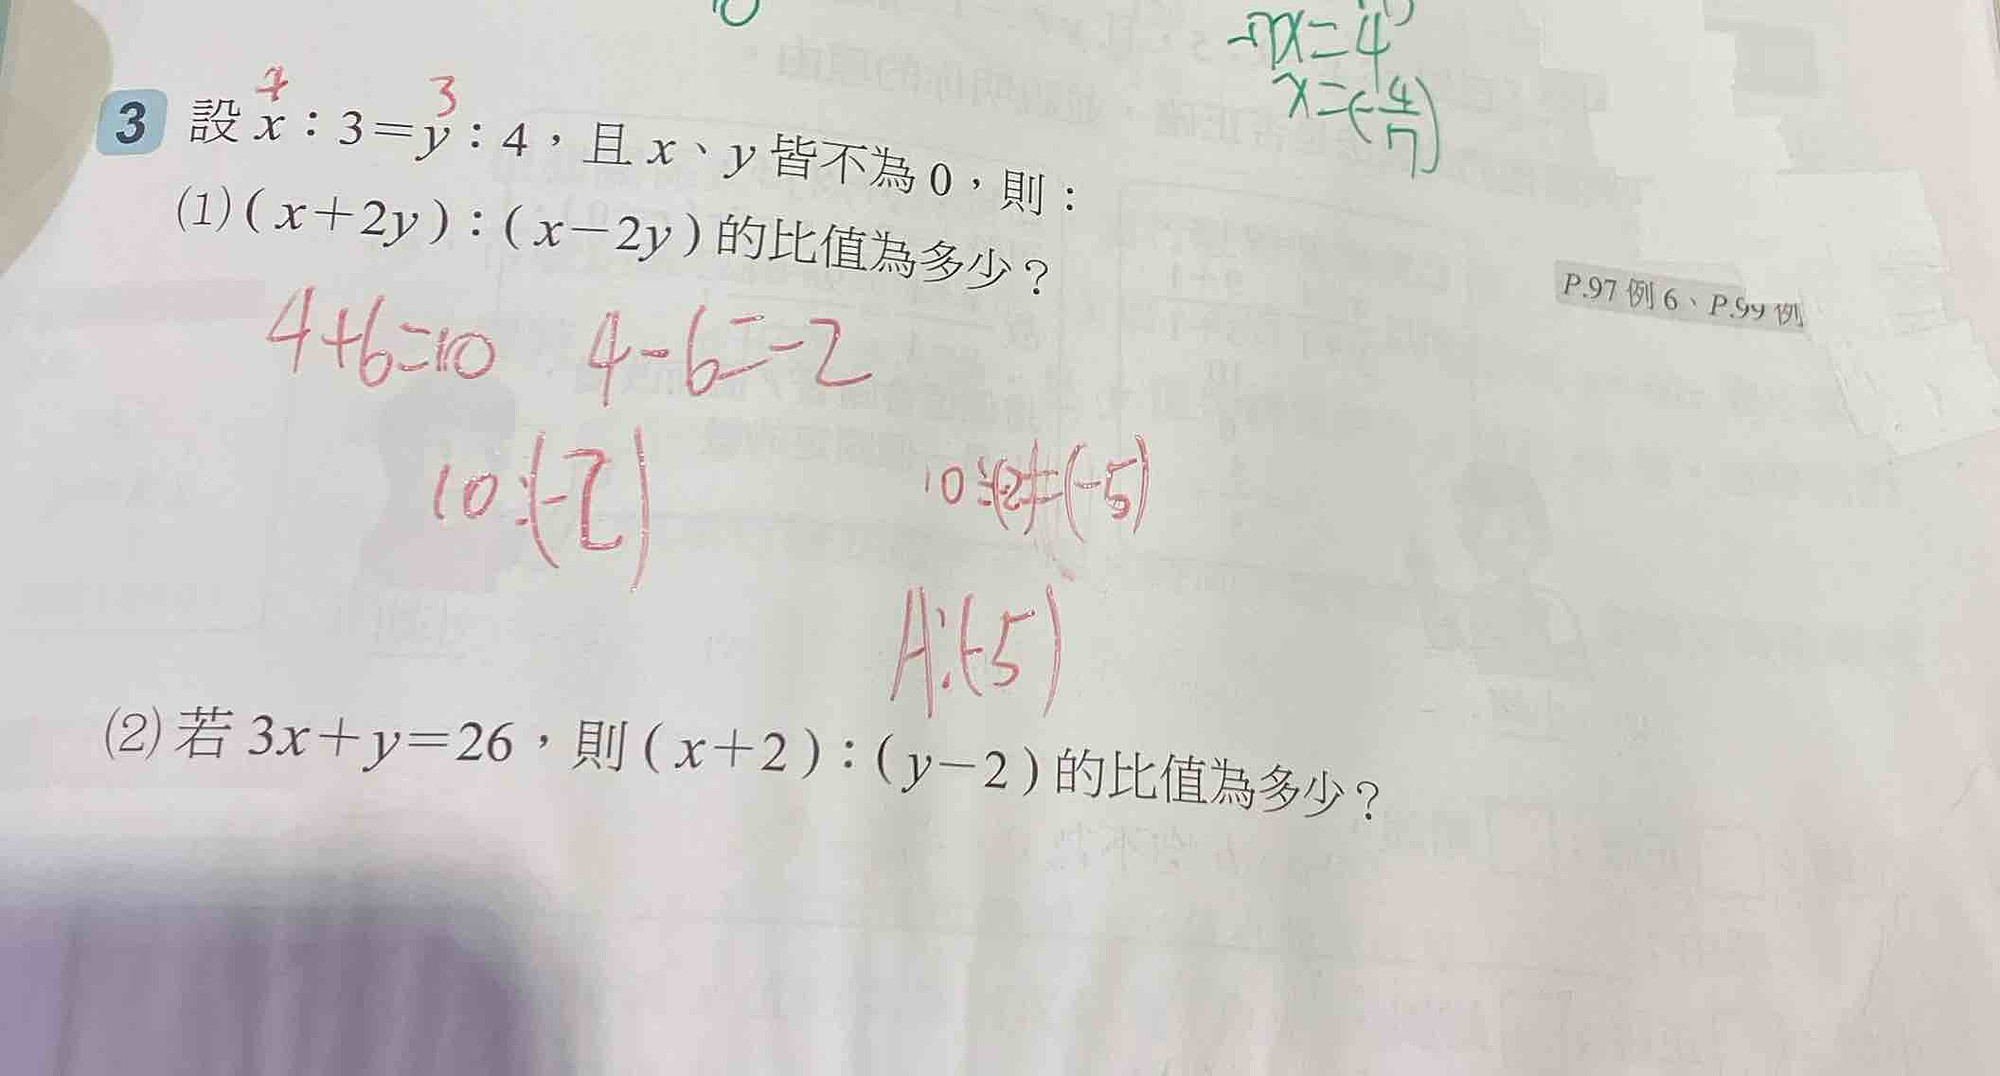 -7x=4
x=(-4/7)
4 3
3 設 x:3=y:4，且 x、y 皆不為 0，則：
(1)(x+2y):(x-2y)的比值為多少？
P.97 例 6、P.99 例
4+6=10 4-6=-2
10:(-2) 10÷(-2)=(-5)
A:(-5)
(2) 若 3x+y=26，則(x+2):(y-2)的比值為多少？